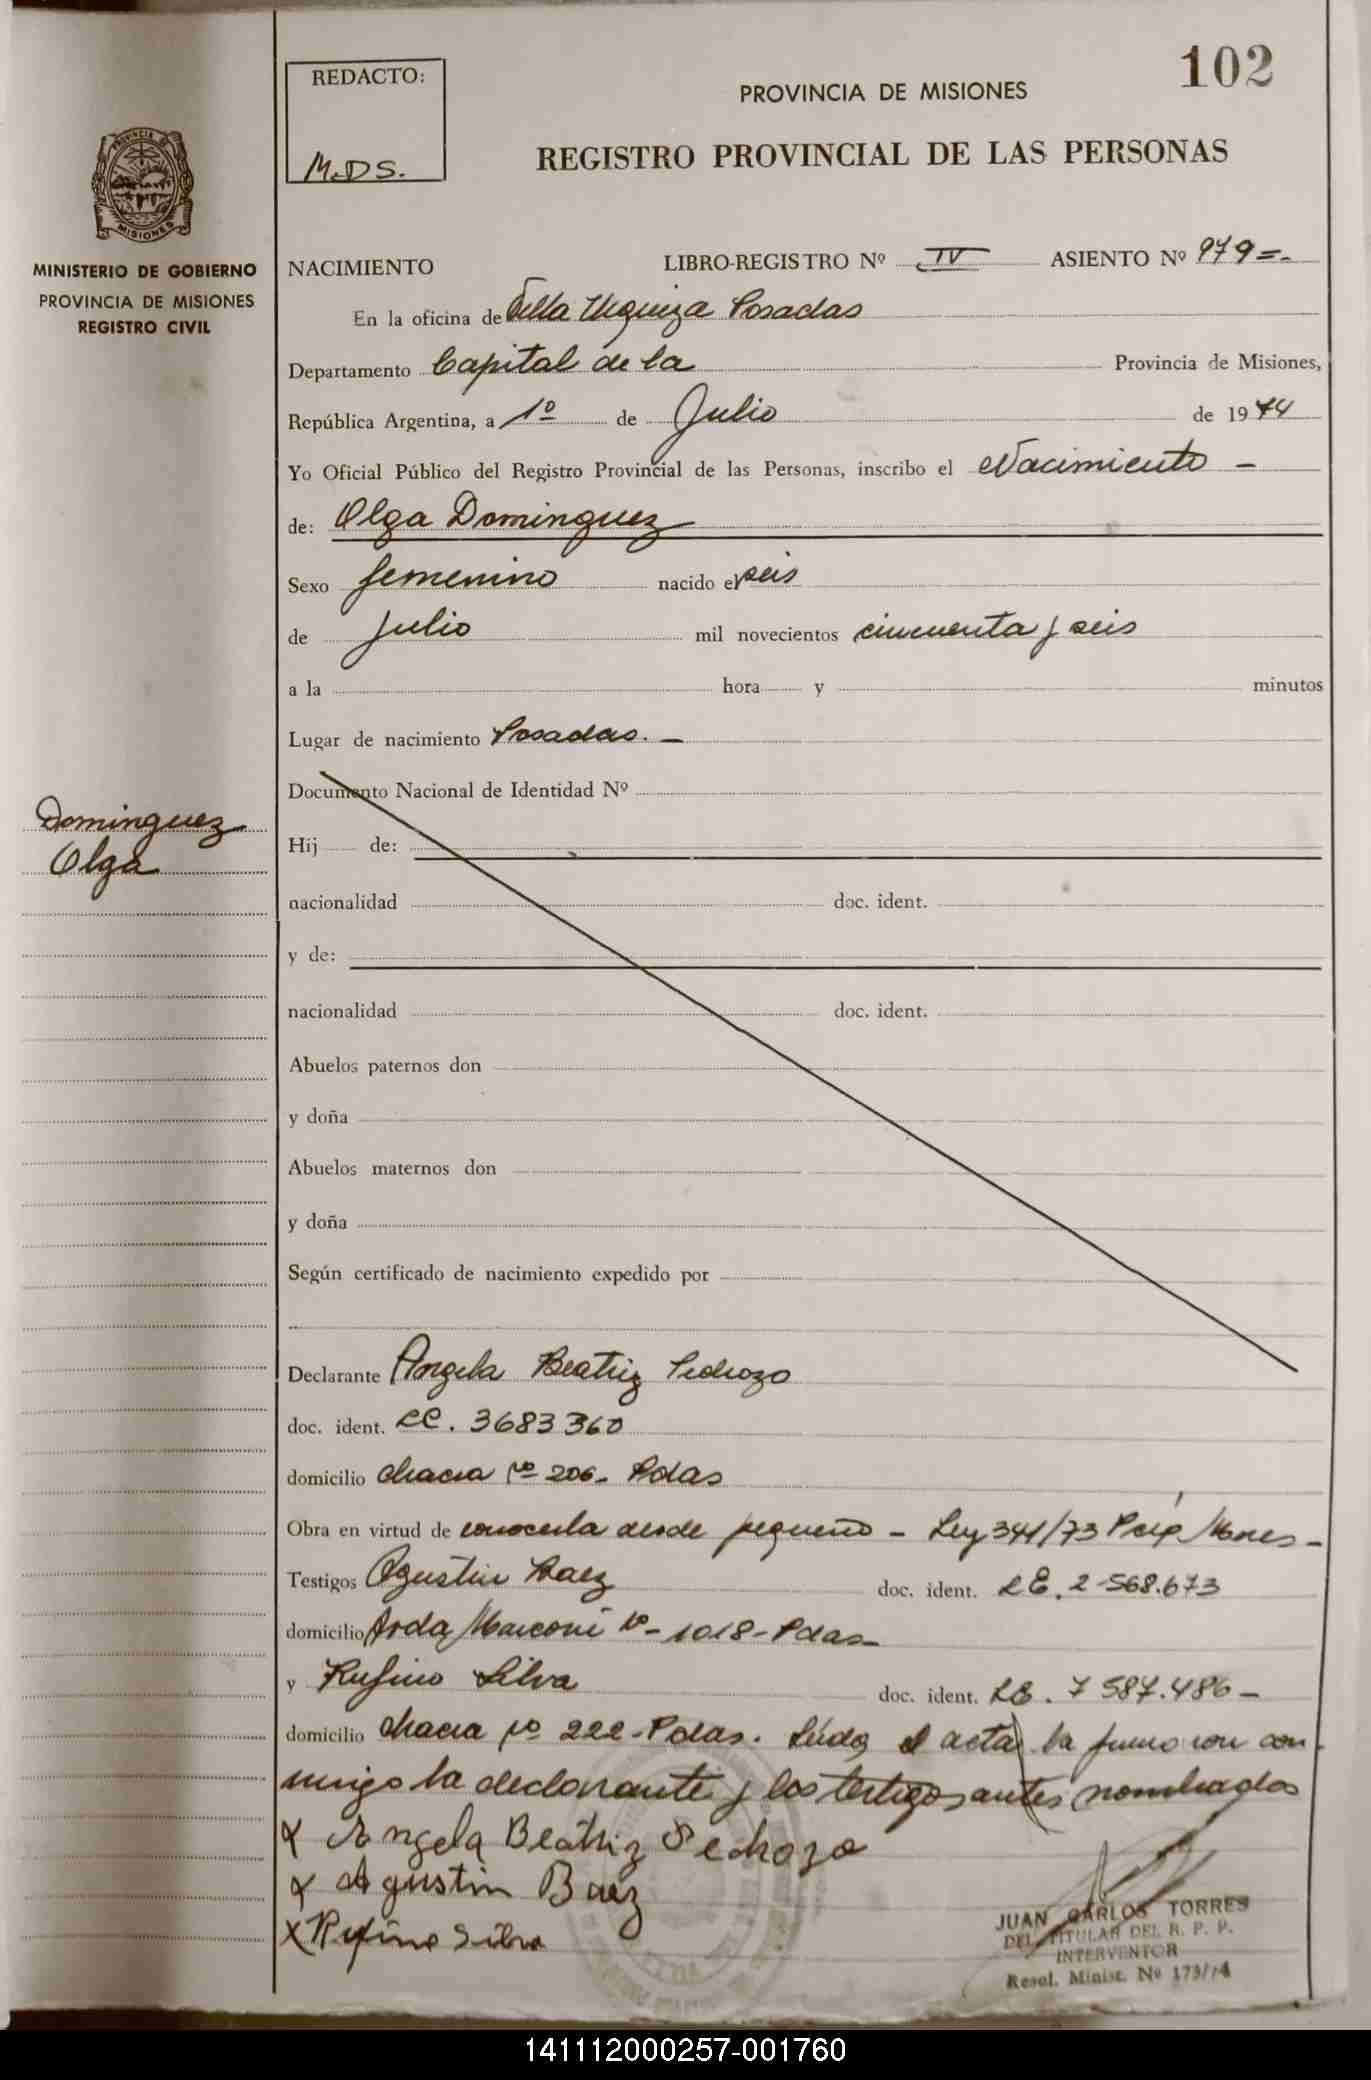 102
REDACTO:
M.DS.
PROVINCIA DE MISIONES
REGISTRO PROVINCIAL DE LAS PERSONAS
PROVINCIA DE
MISIONES
MINISTERIO DE GOBIERNO
PROVINCIA DE MISIONES
REGISTRO CIVIL
NACIMIENTO LIBRO-REGISTRO Nº IV ASIENTO Nº 979=-
En la oficina de Villa Urquiza Posadas
Departamento Capital de la Provincia de Misiones,
República Argentina, a 1º de Julio de 1974
Yo Oficial Público del Registro Provincial de las Personas, inscribo el Nacimiento -
de: Olga Dominguez
Sexo femenino nacido el seis
de Julio mil novecientos cincuenta y seis
a la hora y minutos
Lugar de nacimiento Posadas. -
Documento Nacional de Identidad Nº
Dominguez
Olga
Hij de:
nacionalidad doc. ident.
y de:
nacionalidad doc. ident.
Abuelos paternos don
y doña
Abuelos maternos don
y doña
Según certificado de nacimiento expedido por
Declarante Angela Beatriz Pedrozo
doc. ident. LC. 3683360
domicilio chacra Nº 206- Pdas
Obra en virtud de conocerla desde pequeño - Ley 341/73 Pcia Mnes-
Testigos Agustin Baez doc. ident. LE. 2-568.673
domicilio Avda Marconi Nº- 1018-Pdas-
y Rufino Silva doc. ident. LE. 7587.486-
domicilio chacra Nº 222-Pdas. Leida el acta la firmaron con
migo la declarante y los testigos antes nombrados
x Angela Beatriz Pedrozo
x Agustin Baez
x Rufino Silva
JUAN CARLOS TORRES
DEL TITULAR DEL R. P. P.
INTERVENTOR
Resol. Minist. Nº 173/74
141112000257-001760